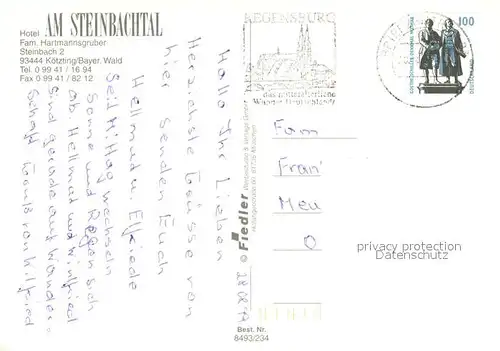 Hotel AM STEINBACHTAL
Fam. Hartmannsgruber
Steinbach 2
93444 Kötzting/Bayer. Wald
Tel. 0 99 41 / 16 94
Fax 0 99 41 / 82 12
Hallo Ihr Lieben
Herzlichste Grüsse von
hier senden Euch
Hellmut u. Elfriede
Seit Mittag wechseln
Sonne und Regen sich
ab. Hellmut und Winfried
sind gerade auf Wander-
schaft Gruß von Wilfried
REGENSBURG
das mittelalterliche
Wunder Deutschlands
100
GOETHE-SCHILLER-DENKMAL WEIMAR
DEUTSCHLAND
Fam
Fran
Meu
O
Fiedler
Werbestudio & Verlag GmbH
privacy protection
Datenschutz
Best. Nr.
8493/234